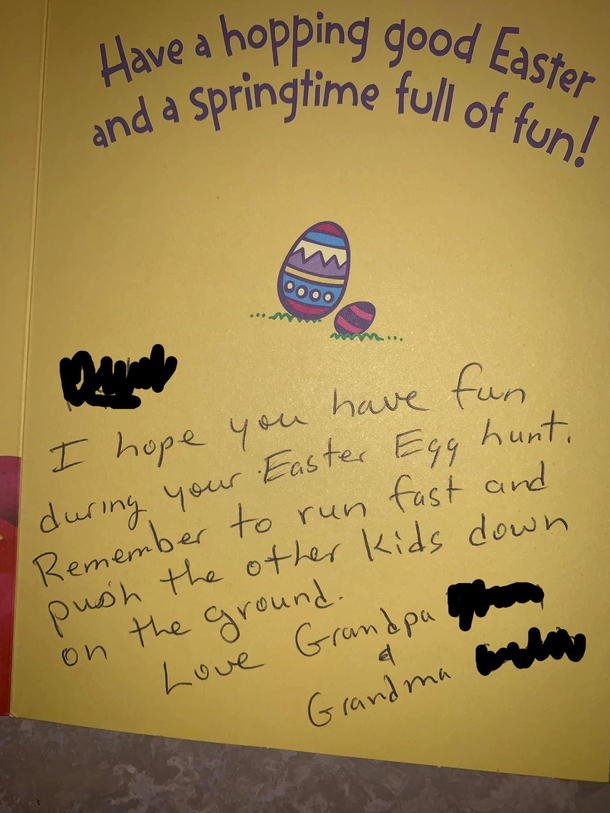 Have a hopping good Easter
and a springtime full of fun!
I hope you have fun
during your Easter Egg hunt.
Remember to run fast and
push the other kids down
on the ground.
Love Grandpa
&
Grandma